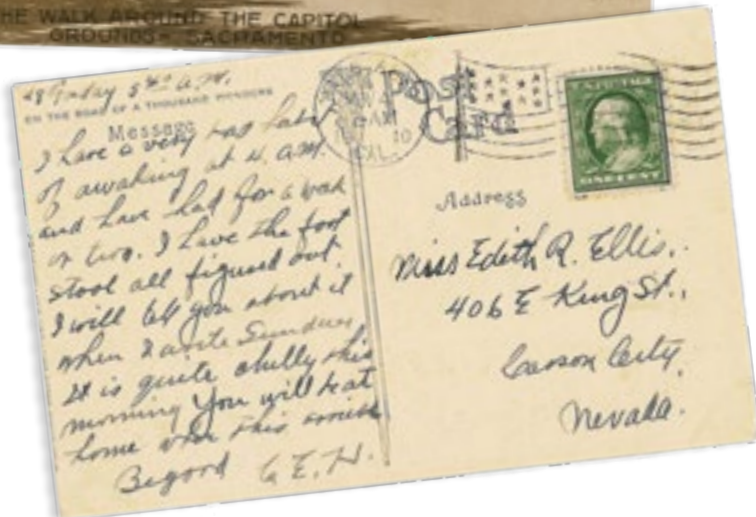 THE WALK AROUND THE CAPITOL
GROUNDS - SACRAMENTO
Friday 5 A.M.
ON THE ROAD OF A THOUSAND WONDERS
Message
I have a very bad habit
of awaking at 4. A.M.
and have had for a week
or two. I have the foot
stool all figured out.
I will tell you about it
when I write Sunday
It is quite chilly this
morning You will be at
home when this arrives
Begood G. E. H.
Post
Card
CAL.
10
U.S. POSTAGE
ONE CENT
Address
Miss Edith R. Ellis.
406 E King St.,
Carson City,
Nevada.